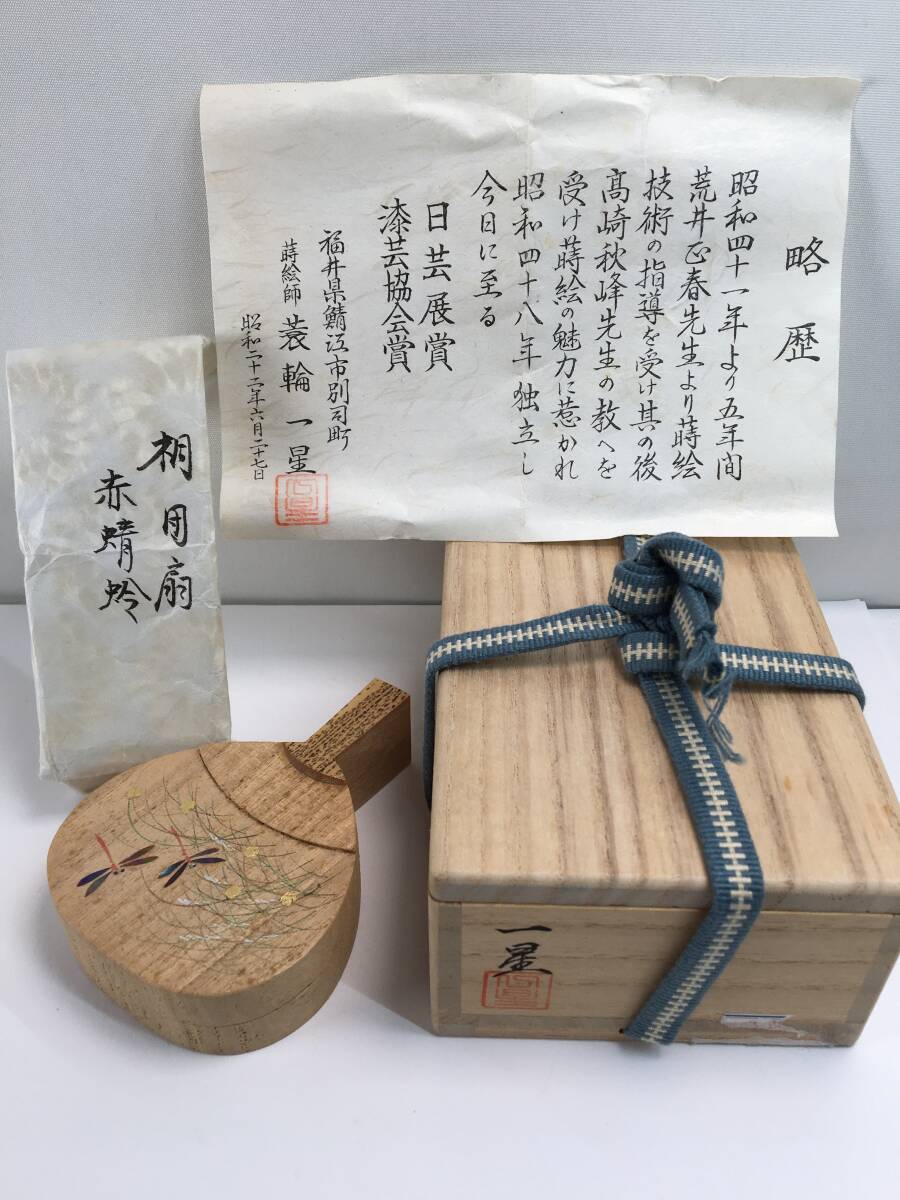 略歴
昭和四十一年より五年間
荒井正春先生より蒔絵
技術の指導を受け其の後
高崎秋峰先生の教へを
受け蒔絵の魅力に惹かれ
昭和四十八年独立し
今日に至る
日芸展賞
漆芸協会賞
福井県鯖江市別司町
蒔絵師 蓑輪一星
昭和二十二年六月二十七日
桐団扇
赤蜻蛉
一星